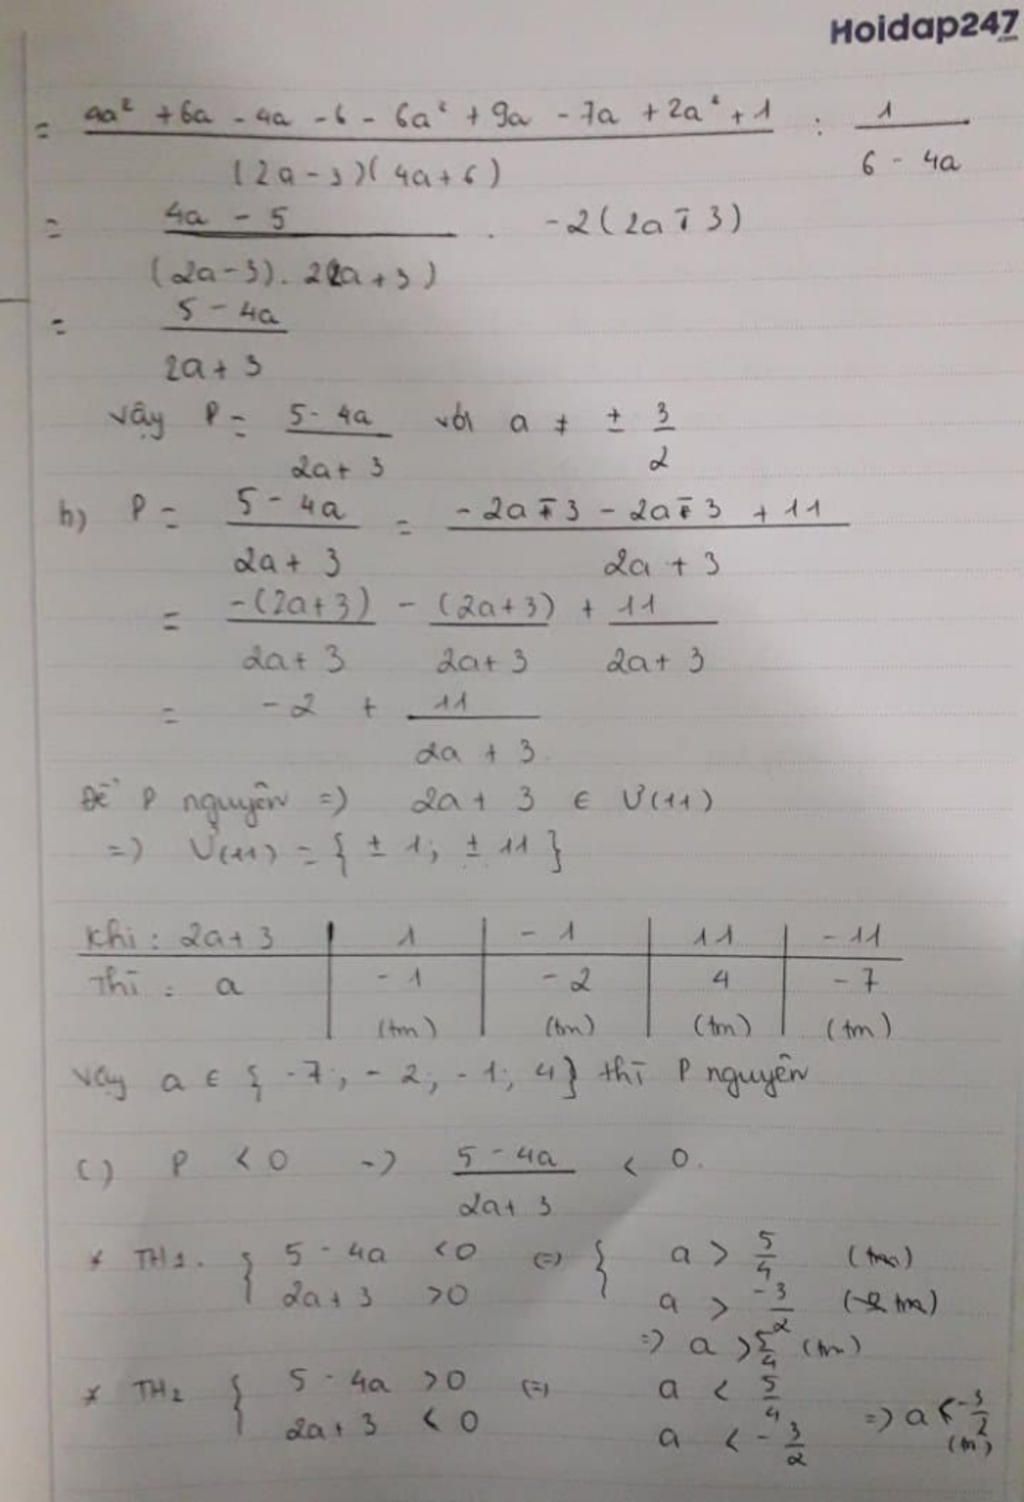 Hoidap247
= 4a² + 6a - 4a - 6 - 6a² + 9a - 7a + 2a² + 1 : 1
(2a - 3)(4a + 6) 6 - 4a
= 4a - 5 . -2(2a - 3)
(2a - 3). 2(2a + 3)
= 5 - 4a
2a + 3
Vậy P = 5 - 4a với a ≠ ± 3
2a + 3 2
b) P = 5 - 4a = -2a - 3 - 2a - 3 + 11
2a + 3 2a + 3
= -(2a+3) - (2a+3) + 11
2a + 3 2a + 3 2a + 3
= -2 + 11
2a + 3
Để P nguyên => 2a + 3 ∈ Ư(11)
=> Ư(11) = { ± 1; ± 11 }
Khi : 2a+3 1 -1 11 -11
Thì : a -1 -2 4 -7
(tm) (tm) (tm) (tm)
Vậy a ∈ { -7; -2; -1; 4} thì P nguyên
c) P < 0 => 5 - 4a < 0.
2a + 3
* TH1. { 5 - 4a < 0 (=) { a > 5/4 (tm)
2a + 3 > 0 a > -3/2
=> a > 5/4 (tm)
* TH2 { 5 - 4a > 0 (=) a < 5/4
2a + 3 < 0 a < -3/2 => a < -3/2
(tm)